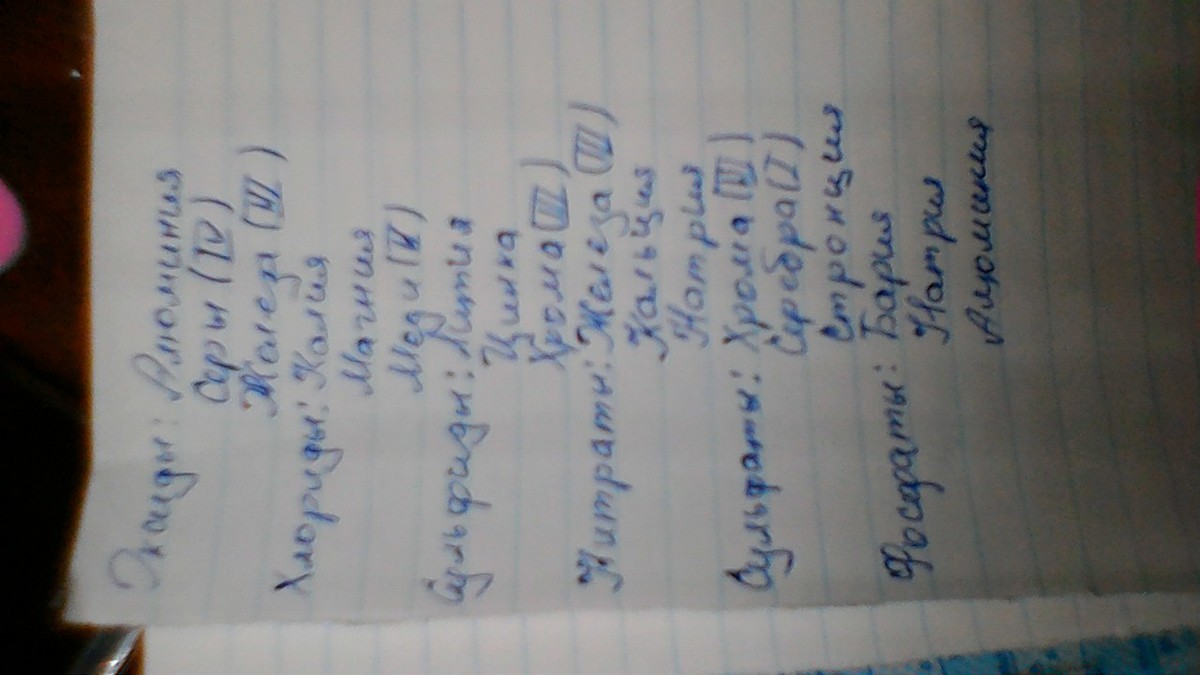 Оксиды: Алюминия
Серы (IV)
Железа (VI)
Хлориды: Калия
Магния
Меди (II)
Сульфиды: Лития
Цинка
Хрома (III)
Нитраты: Железа (III)
Кальция
Натрия
Сульфаты: Хрома (III)
Серебра (I)
Стронция
Фосфаты: Бария
Натрия
Алюминия